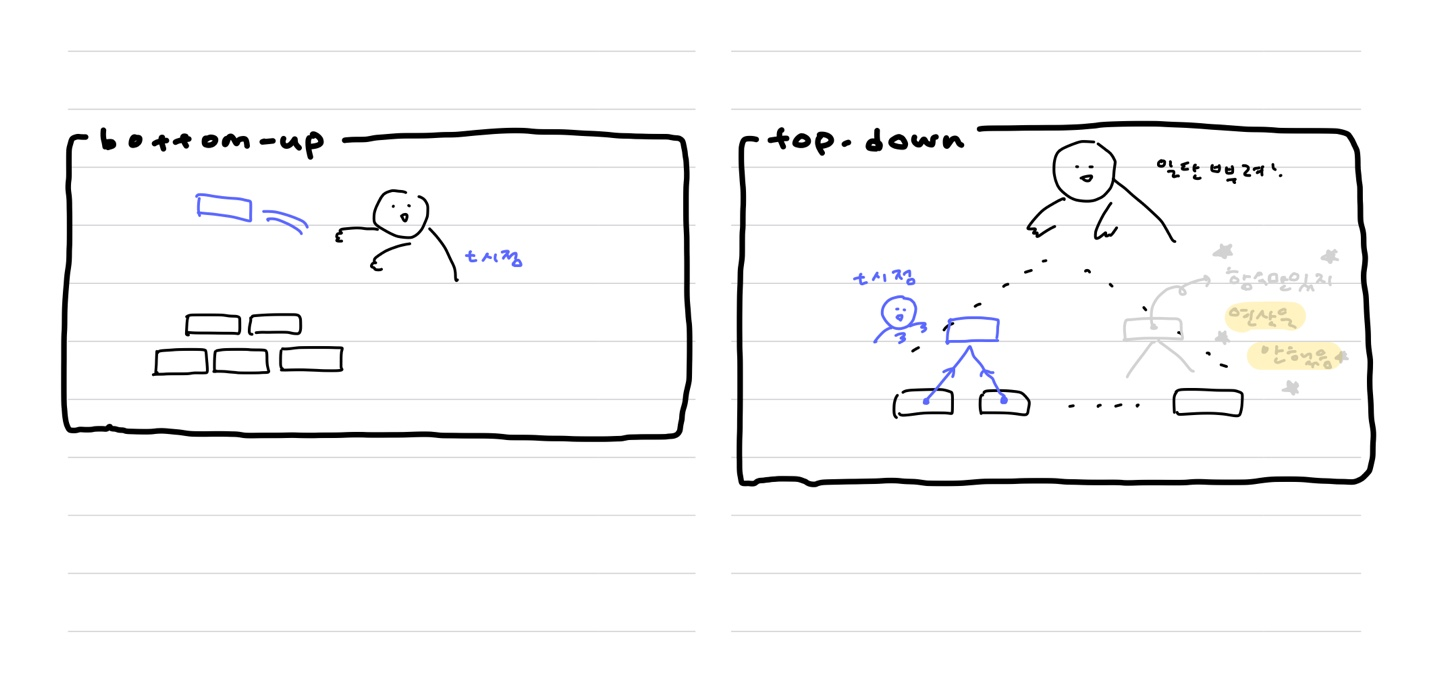 bottom-up
t시점
top-down
일단 뿌려!
t시점
함수만있지
연산을
안했음